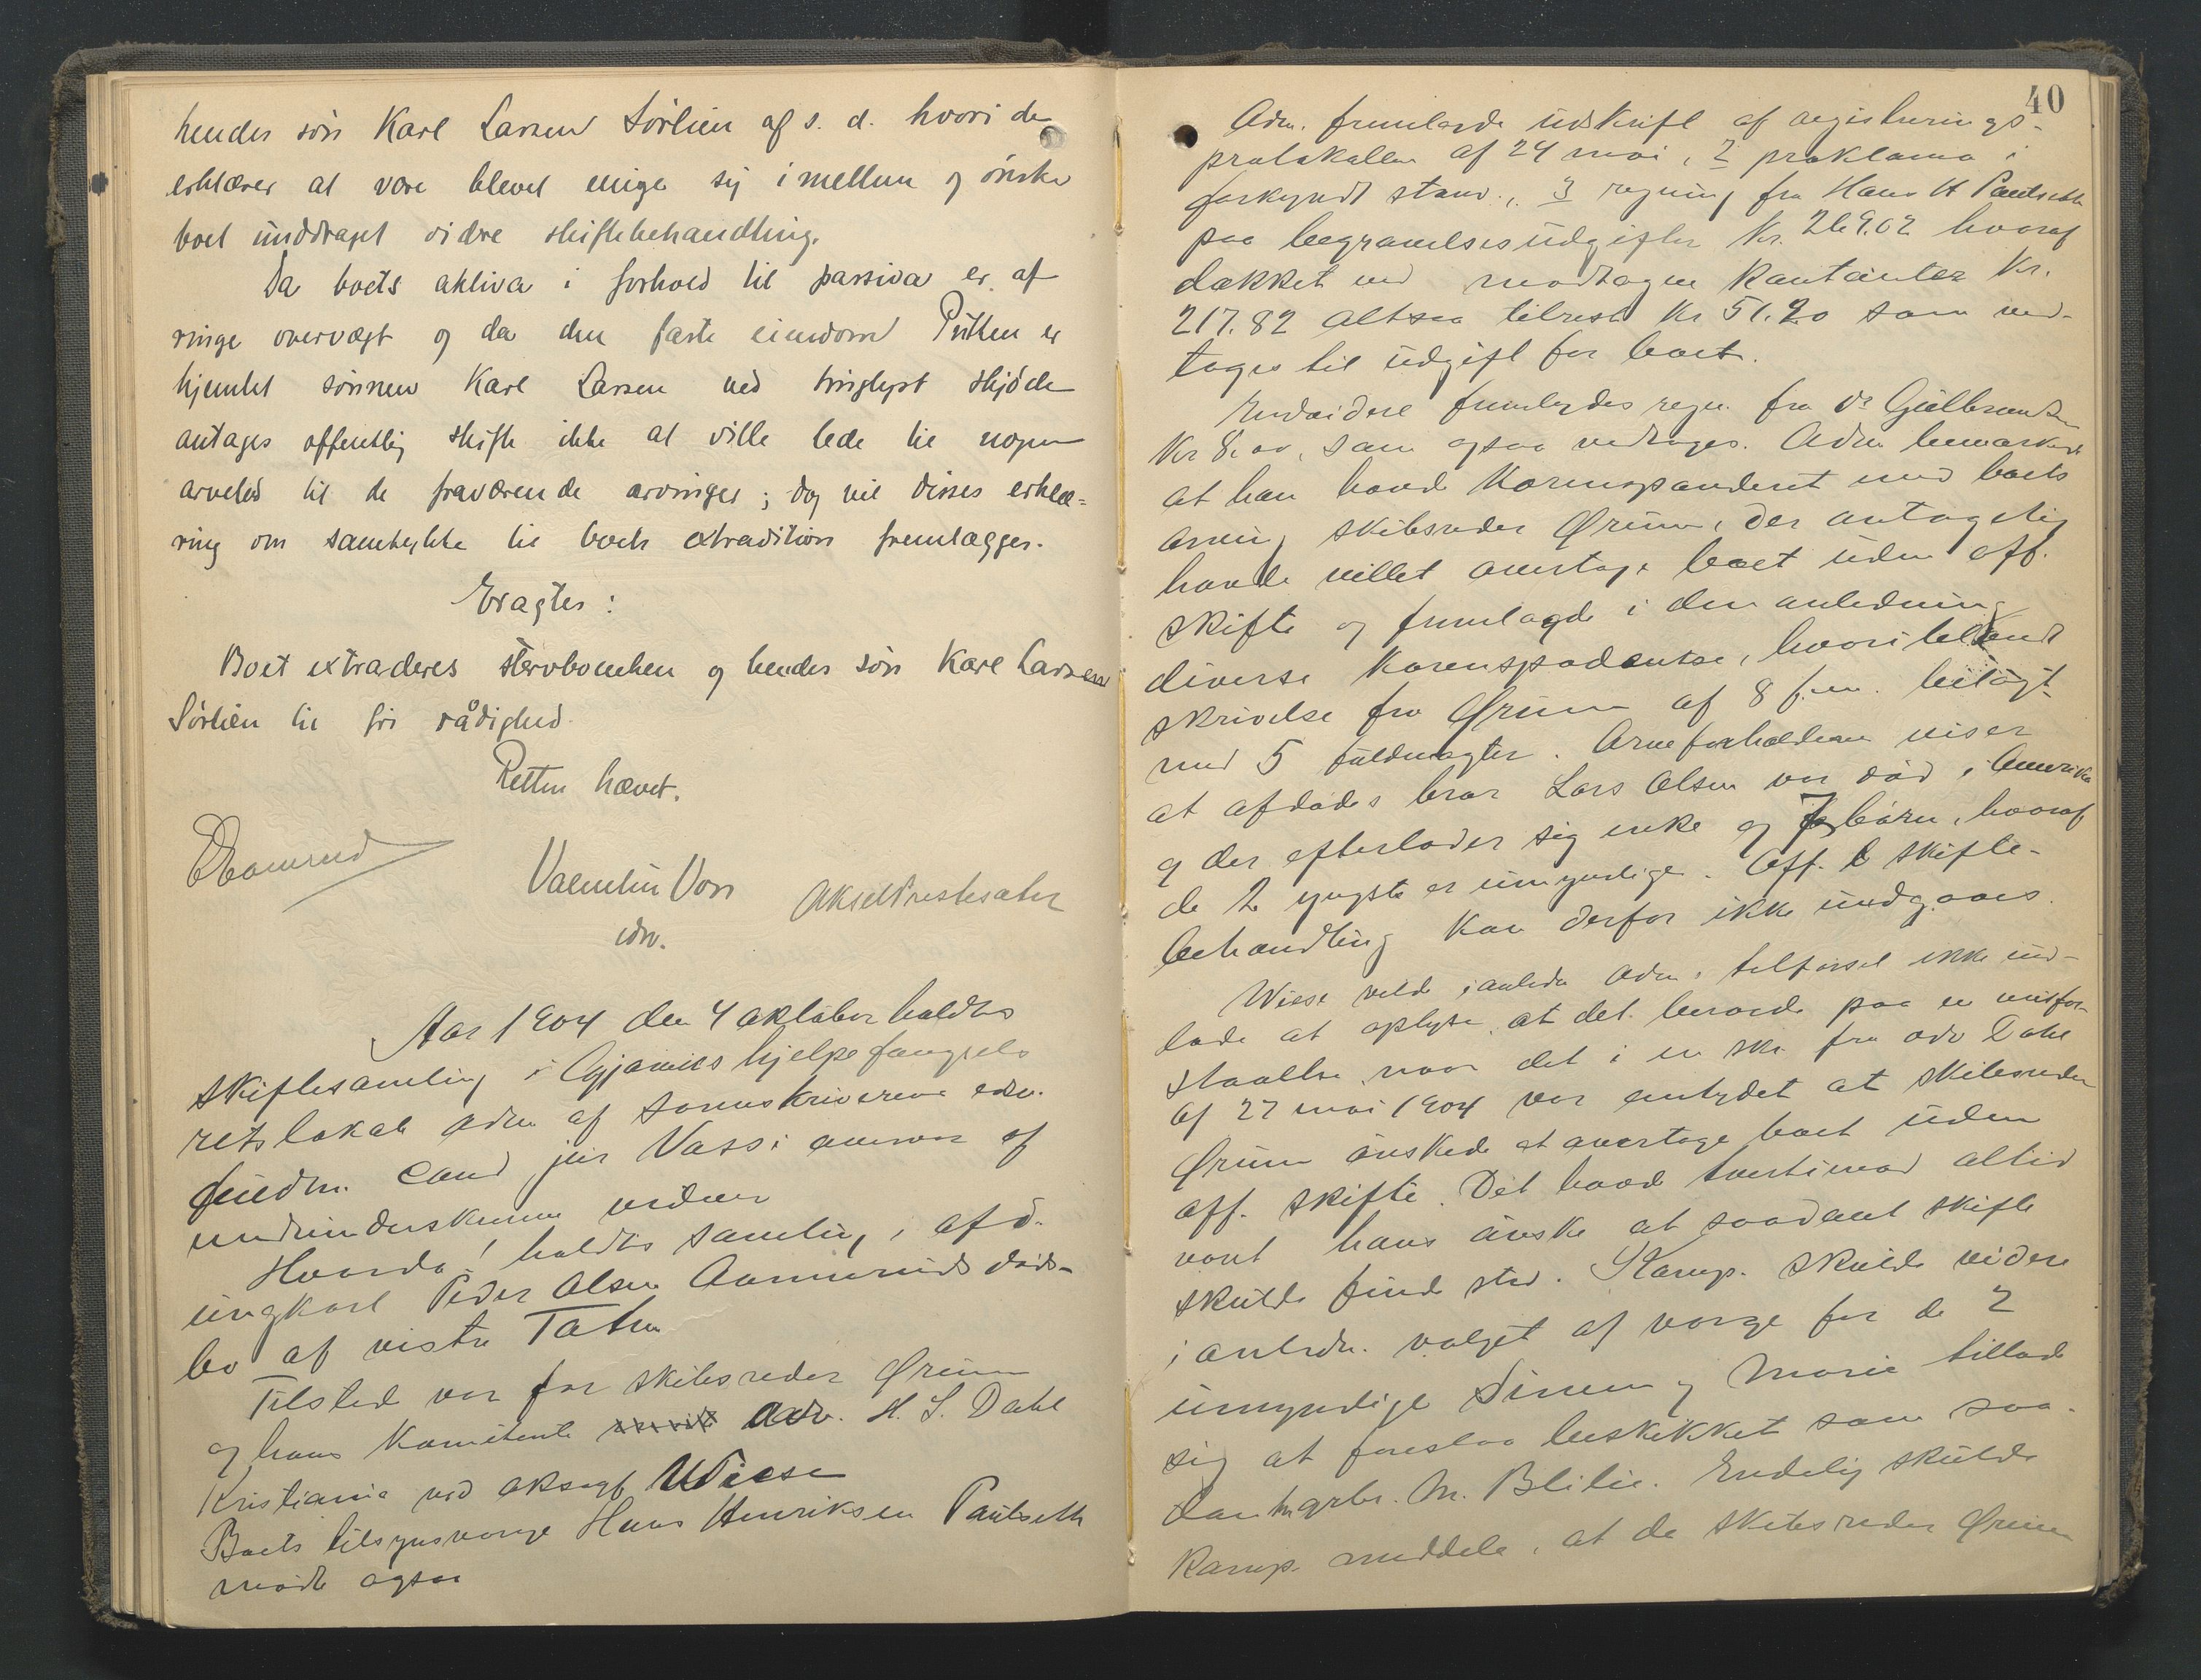 hendes søn Karl Larsen Sørlien af s. d. hvori de
erklærer at være blevet enige sig imellem og ønske
boet unddraget videre skiftebehandling.
Da boets aktiva i forhold til passiva er af
ringe overvægt og da den faste eiendom Putten er
hjemlet sønnen Karl Larsen ved tinglyst skjøde
antages offentlig skifte ikke at ville lede til nogen
arvelod til de fraværende arvinger; dog vil disses erklæ=
ring om samtykke til boets extradition fremlægges.
Eragtes:
Boet extraderes stervboenken og hendes søn Karl Larsen
Sørlien til fri rådighed.
Retten hævet.
Valentin Voss
edsv.
Aar 1904 den 4 oktober holdtes
skiftesamling i Gjøviks hjelpefængsels
retslokale adm af sorenskriverens edsv.
fuldm. cand jur Voss i overvær af
medunderskrevne vidner
Hvorda! holdtes samling i afd.
ungkarl Peder Olsen Aamueruds døds-
bo af vestre Toten
Tilsted var for skibsreder Ørum
og hans komitenter adv. H. S. Dahl
Kristiania ved oksagf Wiese
Boets tilsynsværge Hans Henriksen Paulseth
mødte ogsaa
40
Adm. fremlagde udskrift af registrerings-
protokollen af 24 mai, 2 proklama i
forkyndt stand., 3 regning fra Hans H Paulseth
paa begravelsesudgifter Kr. 269.02 hvoraf
dækket ved modtagne kontanter Kr.
217.82 altsaa tilrest Kr 51.20 som ved-
toges til udgift for boet.
Endvidere fremlagdes regn. fra dr Gulbrandsen
Kr 8.00, som ogsaa vedtoges. Adm bemærkede
at han havde korrespondert med boets
arving skibsreder Ørum, der antagelig
havde villet overtage boet uden off.
skifte og fremlagde i den anledning
diverse korrespondentse, hvoriblandt
skrivelse fra Ørum af 8 f.m. bilagt
med 5 fuldmagter. Arveforholdene viser
at afdødes bror Lars Olsen var død i Amerika
og der efterlader sig enke og 7 børn, hvoraf
de 2 yngste er umyndige. Off. skifte-
behandling kan derfor ikke undgaaes.
Wiese vilde i anledn adm. tilførsel ikke und-
lade at oplyse, at det beroede paa en misfor-
staaelse naar det i en skr. fra adv Dahl
af 27 mai 1904 var antydet at skibsreder
Ørum ønskede at overtage boet uden
off. skifte. Det havde tvertimod altid
vært hans ønske at saadant skifte
skulde finde sted. Komp. skulde videre
i anledn. valget af værge for de 2
umyndige Simen og Marie tillade
sig at foreslaa beskikket som saa-
dan hgrbr. M. Blilie. Endelig skulde
Komp. meddele, at da skibsreder Ørum